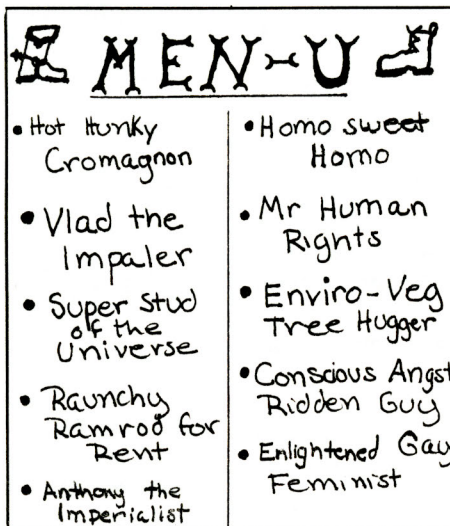 MEN-U
• Hot Hunky
Cromagnon
• Vlad the
Impaler
• Super Stud
of the
Universe
• Raunchy
Ramrod for
Rent
• Anthony the
Imperialist
• Homo sweet
Homo
• Mr Human
Rights
• Enviro-Veg
Tree Hugger
• Conscious Angst
Ridden Guy
• Enlightened Gay
Feminist